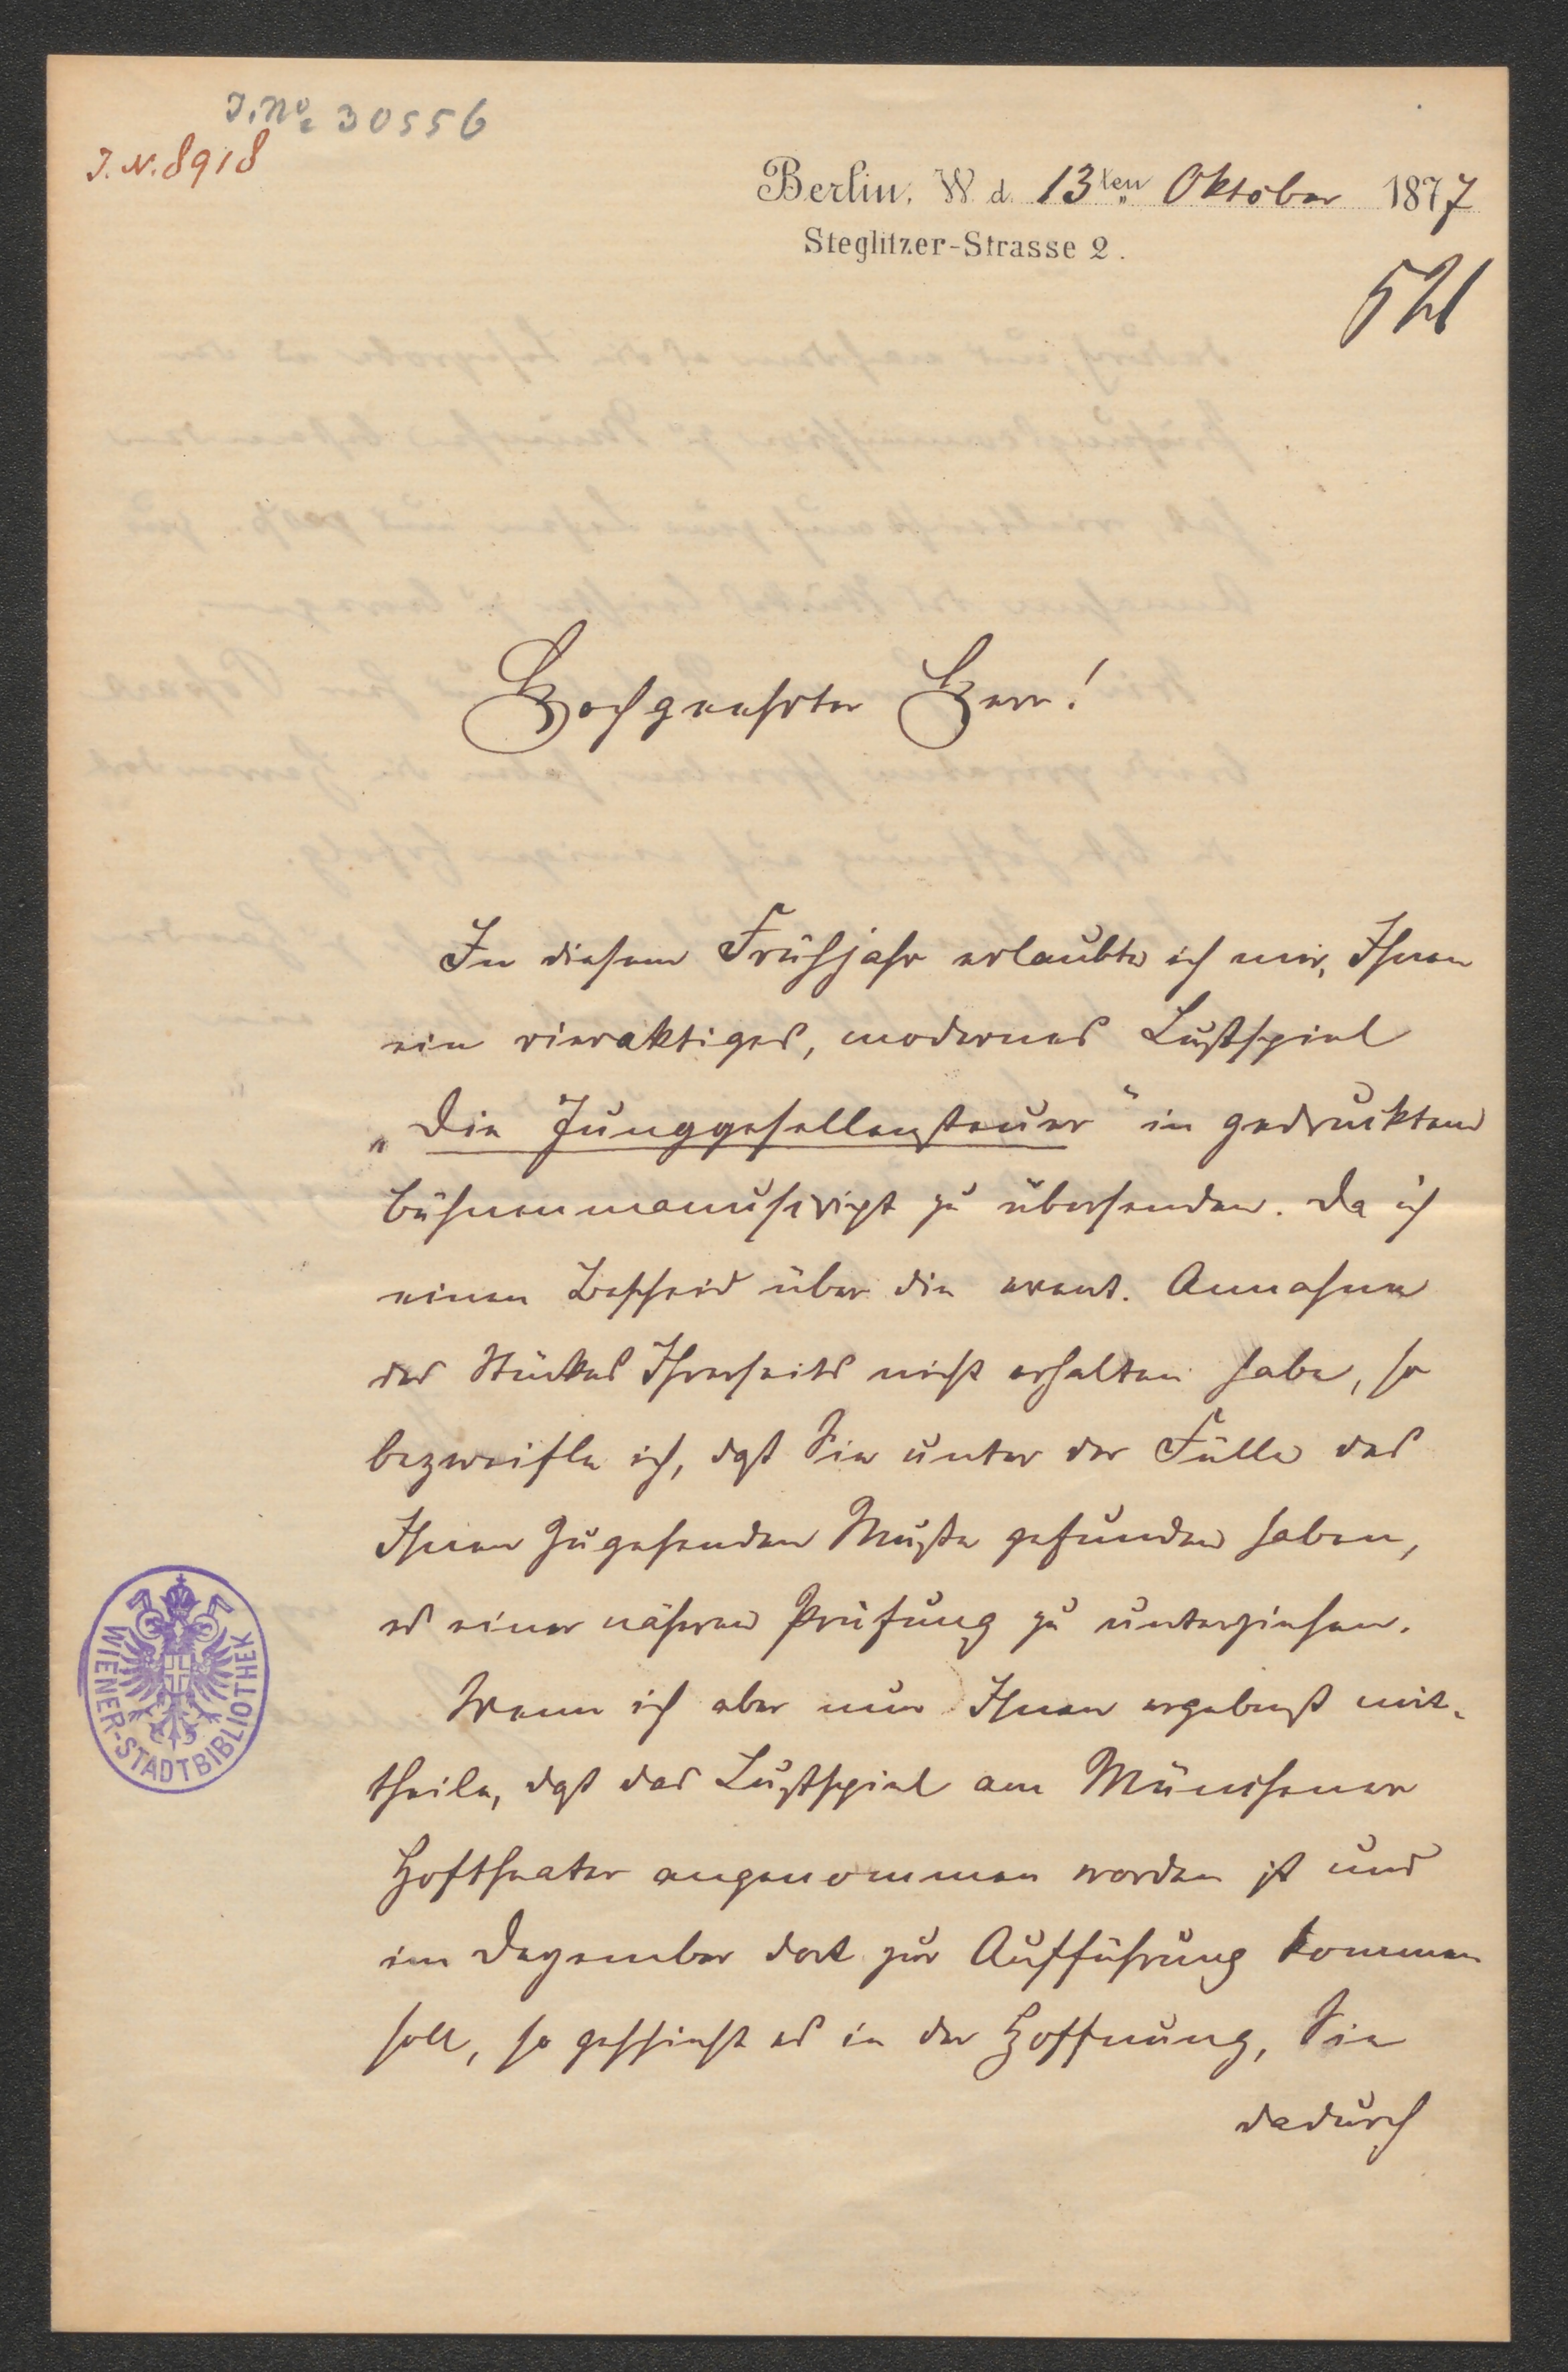 J. No. 30556
J. N. 8918
Berlin, W. d. 13ten Oktober 1877
Steglitzer-Strasse 2.
Hochgeehrter Herr!
In diesem Frühjahr erlaubte ich mir, Ihnen
ein vieraktiges, modernes Lustspiel
„Die Junggesellensteuer“ in gedrucktem
Bühnenmanuskript zu übersenden. Da ich
einen Bescheid über die event. Annahme
des Stückes Ihrerseits nicht erhalten habe, so
bezweifle ich, daß Sie unter der Fülle des
Ihnen Zugehenden Muße gefunden haben,
es einer näheren Prüfung zu unterziehen.
Wenn ich aber nun Ihnen ergebenst mit-
theile, daß das Lustspiel am Münchener
Hoftheater angenommen worden ist und
im Dezember dort zur Aufführung kommen
soll, so geschieht es in der Hoffnung, Sie
dadurch
WIENER-STADTBIBLIOTHEK